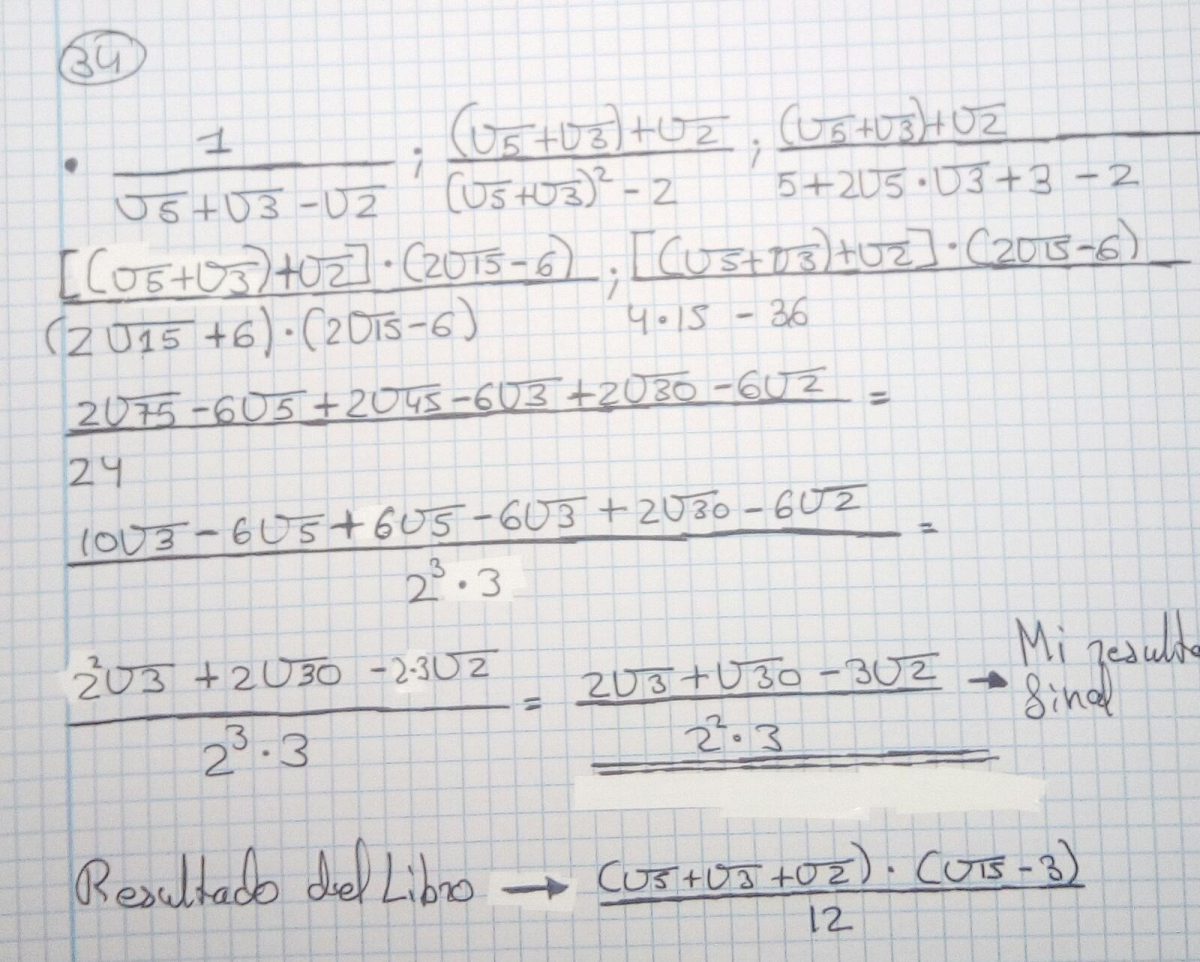 34
• 1/(√5+√3-√2) ; ((√5+√3)+√2)/((√5+√3)²-2) ; ((√5+√3)+√2)/(5+2√5·√3+3-2)
([(√5+√3)+√2]·(2√15-6))/((2√15+6)·(2√15-6)) ; ([(√5+√3)+√2]·(2√15-6))/(4·15-36)
(2√75-6√5+2√45-6√3+2√30-6√2)/24 =
(10√3-6√5+6√5-6√3+2√30-6√2)/(2³·3) =
(2²√3+2√30-2·3√2)/(2³·3) = (2√3+√30-3√2)/(2²·3) → Mi resulta
final
Resultado del Libro → ((√5+√3+√2)·(√15-3))/12